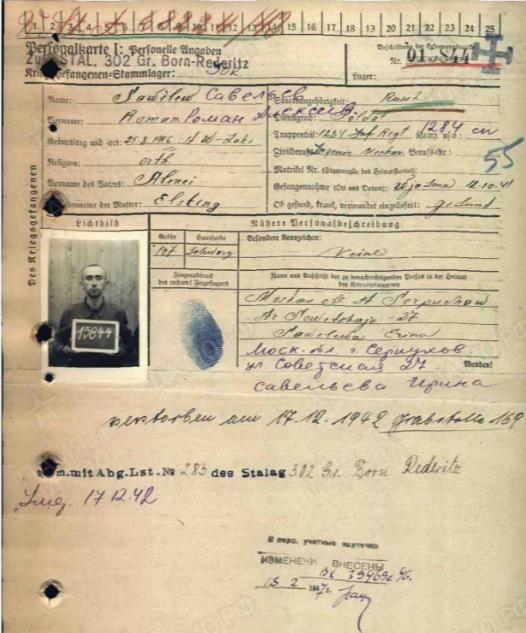 1 2 3 4 5 6 7 8 9 10 11 12 13 14 15 16 17 18 19 20 21 22 23 24 25
Personalkarte I: Personelle Angaben
STAL. 302 Gr. Born-Rederitz
Kriegsgefangenen-Stammlager:
Beschriftung der Erkennungsmarke
Nr. 015844
Lager:
Des Kriegsgefangenen
Name: Sawelew Савельев
Staatsangehörigkeit: Russl
Vorname: Roman Роман Алексеев
Dienstgrad: Soldat
Truppenteil: 1284 Inf Regt Komp. usw.: 1284 сп
Geburtstag und -ort:
Zivilberuf: Berufs-Gr.:
55
Religion: orth
Matrikel Nr. (Stammrolle des Heimatstaates)
Vorname des Vaters: Alexei
Gefangennahme (Ort und Datum): 12.10.41
Familienname der Mutter:
Ob gesund, krank, verwundet eingeliefert: gesund
Lichtbild
Nähere Personalbeschreibung
Größe
Haarfarbe
Besondere Kennzeichen:
167 schwarz
Keine
Fingerabdruck
des rechten Zeigefingers
Name und Anschrift der zu benachrichtigenden Person in der Heimat
des Kriegsgefangenen
15844
Serpuchow
27
Sawelewa Erina
Моск. обл. г. Серпухов
ул Советская 27
Wenden!
Савельева Ирина
verstorben am 17.12.1942 Grabstelle 169
mit Abg. Lst. № 283 des Stalag 302 Gr. Born Rederitz
17.12.42
В перс. учетные карточки
ИЗМЕНЕНИ ВНЕСЕНЫ